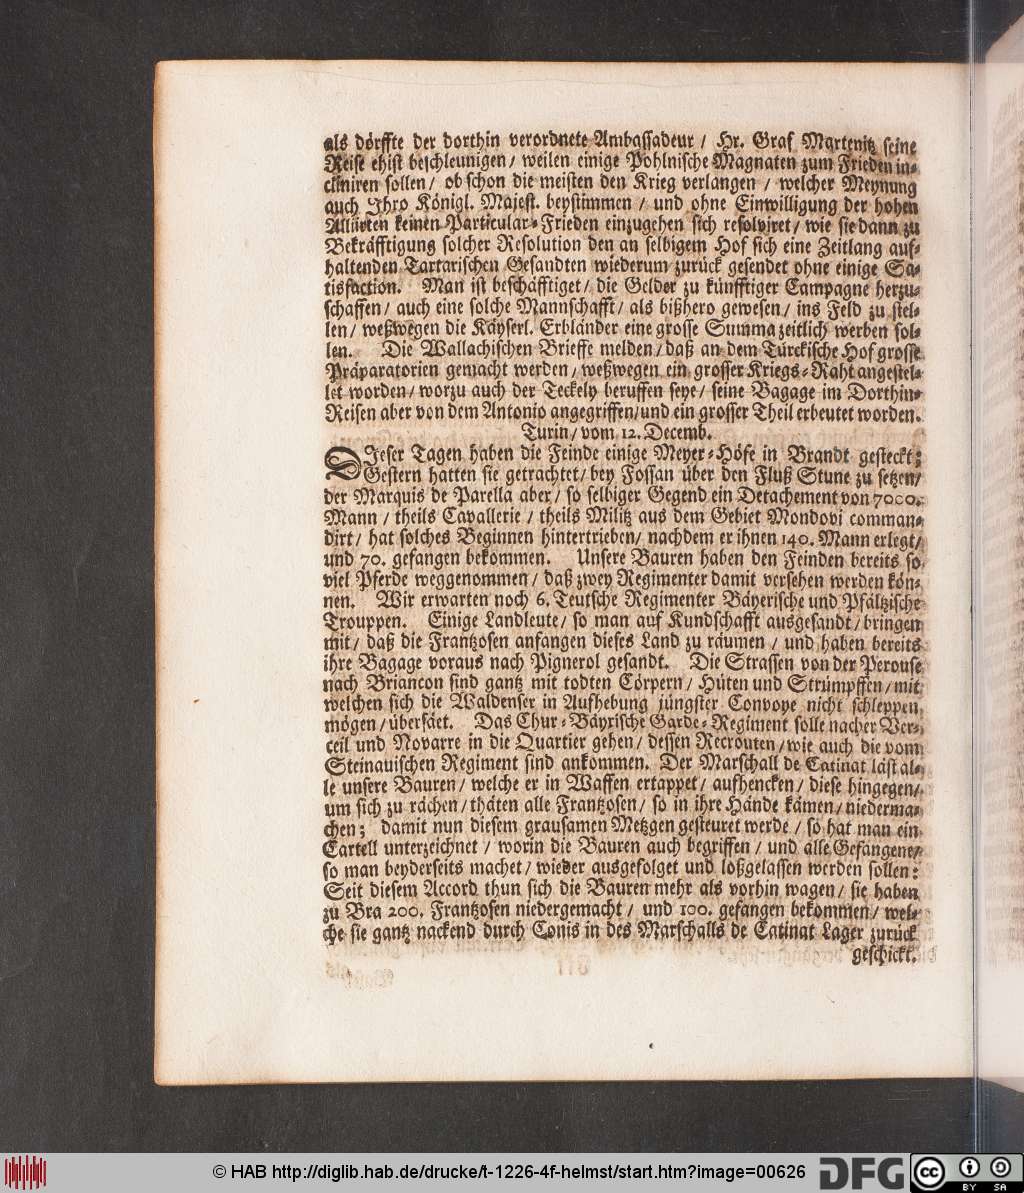 als dörffte der dorthin verordnete Ambassadeur / Hr. Graf Martenitz seine
Reise ehist beschleunigen / weilen einige Pohlnische Magnaten zum Frieden in-
cliniren sollen / ob schon die meisten den Krieg verlangen / welcher Meynung
auch Ihro Königl. Majest. beystimmen / und ohne Einwilligung der hohen
Alliirten keinen Particular-Frieden einzugehen sich resolviret / wie sie dann zu
Bekräfftigung solcher Resolution den an selbigem Hof sich eine Zeitlang auf-
haltenden Tartarischen Gesandten wiederum zurück gesendet ohne einige Sa-
tisfaction. Man ist beschäfftiget / die Gelder zu künfftiger Campagne herzu-
schaffen / auch eine solche Mannschafft / als bißhero gewesen / ins Feld zu stel-
len / weßwegen die Käyserl. Erbländer eine grosse Summa zeitlich werben sol-
len. Die Wallachischen Brieffe melden / daß an dem Türckische Hof grosse
Präparatorien gemacht werden / weßwegen ein grosser Kriegs-Raht angestel-
let worden / worzu auch der Teckely beruffen seye / seine Bagage im Dorthin-
Reisen aber von dem Antonio angegriffen / und ein grosser Theil erbeutet worden.
Turin / vom 12. Decemb.
DIeser Tagen haben die Feinde einige Meyer-Höfe in Brandt gesteckt;
Gestern hatten sie getrachtet / bey Fossan über den Fluß Stune zu setzen /
der Marquis de Parella aber / so selbiger Gegend ein Detachement von 7000.
Mann / theils Cavallerie / theils Militz aus dem Gebiet Mondovi comman-
dirt / hat solches Beginnen hintertrieben / nachdem er ihnen 140. Mann erlegt /
und 70. gefangen bekommen. Unsere Bauren haben den Feinden bereits so
viel Pferde weggenommen / daß zwey Regimenter damit versehen werden kön-
nen. Wir erwarten noch 6. Teutsche Regimenter Bäyerische und Pfältzische
Trouppen. Einige Landleute / so man auf Kundschafft ausgesandt / bringen
mit / daß die Frantzosen anfangen dieses Land zu räumen / und haben bereits
ihre Bagage voraus nach Pignerol gesandt. Die Strassen von der Perouse
nach Briancon sind gantz mit todten Cörpern / Hüten und Strümpffen / mit
welchen sich die Waldenser in Aufhebung jüngster Convoye nicht schleppen
mögen / übersäet. Das Chur-Bäyrische Garde-Regiment solle nacher Ver-
ceil und Novarre in die Quartier gehen / dessen Recrouten / wie auch die vom
Steinauischen Regiment sind ankommen. Der Marschall de Catinat läst al-
le unsere Bauren / welche er in Waffen ertappet / aufhencken / diese hingegen /
um sich zu rächen / thäten alle Frantzosen / so in ihre Hände kämen / niederma-
chen; damit nun diesem grausamen Metzgen gesteuret werde / so hat man ein
Cartell unterzeichnet / worin die Bauren auch begriffen / und alle Gefangene /
so man beyderseits machet / wieder ausgefolget und loßgelassen werden sollen:
Seit diesem Accord thun sich die Bauren mehr als vorhin wagen / sie haben
zu Bra 200. Frantzosen niedergemacht / und 100. gefangen bekommen / wel-
che sie gantz nackend durch Conis in des Marschalls de Catinat Lager zurück
geschickt.
© HAB http://diglib.hab.de/drucke/t-1226-4f-helmst/start.htm?image=00626
DFG
cc BY SA